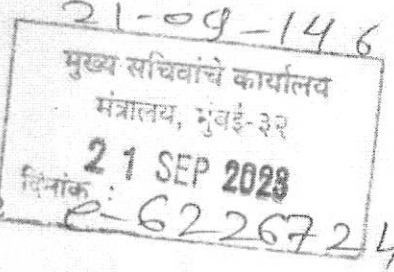 21-09-146
मुख्य सचिवांचे कार्यालय
मंत्रालय, मुंबई-३२
21 SEP 2023
दिनांक :
e-6226724